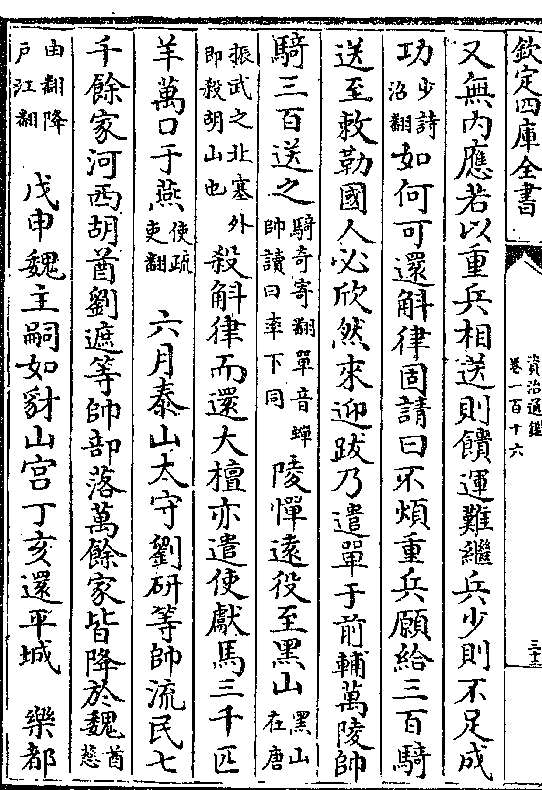 欽定四庫全書
資治通鑑
卷一百十六
三十三
又無内應若以重兵相送則饋運難繼兵少則不足成
功少詩沼翻如何可還斛律固請曰不煩重兵願給三百騎
送至敕勒國人必欣然來迎跋乃遣單于前輔萬陵帥
騎三百送之騎奇寄翻單音蟬帥讀曰率下同陵憚遠役至黑山黑山在唐
振武之北塞外即殺胡山也殺斛律而還大檀亦遣使獻馬三千匹
羊萬口于燕使疏吏翻 六月泰山太守劉研等帥流民七
千餘家河西胡酋劉遮等帥部落萬餘家皆降於魏酋慈
由翻降户江翻 戊申魏主嗣如豺山宫丁亥還平城 樂都